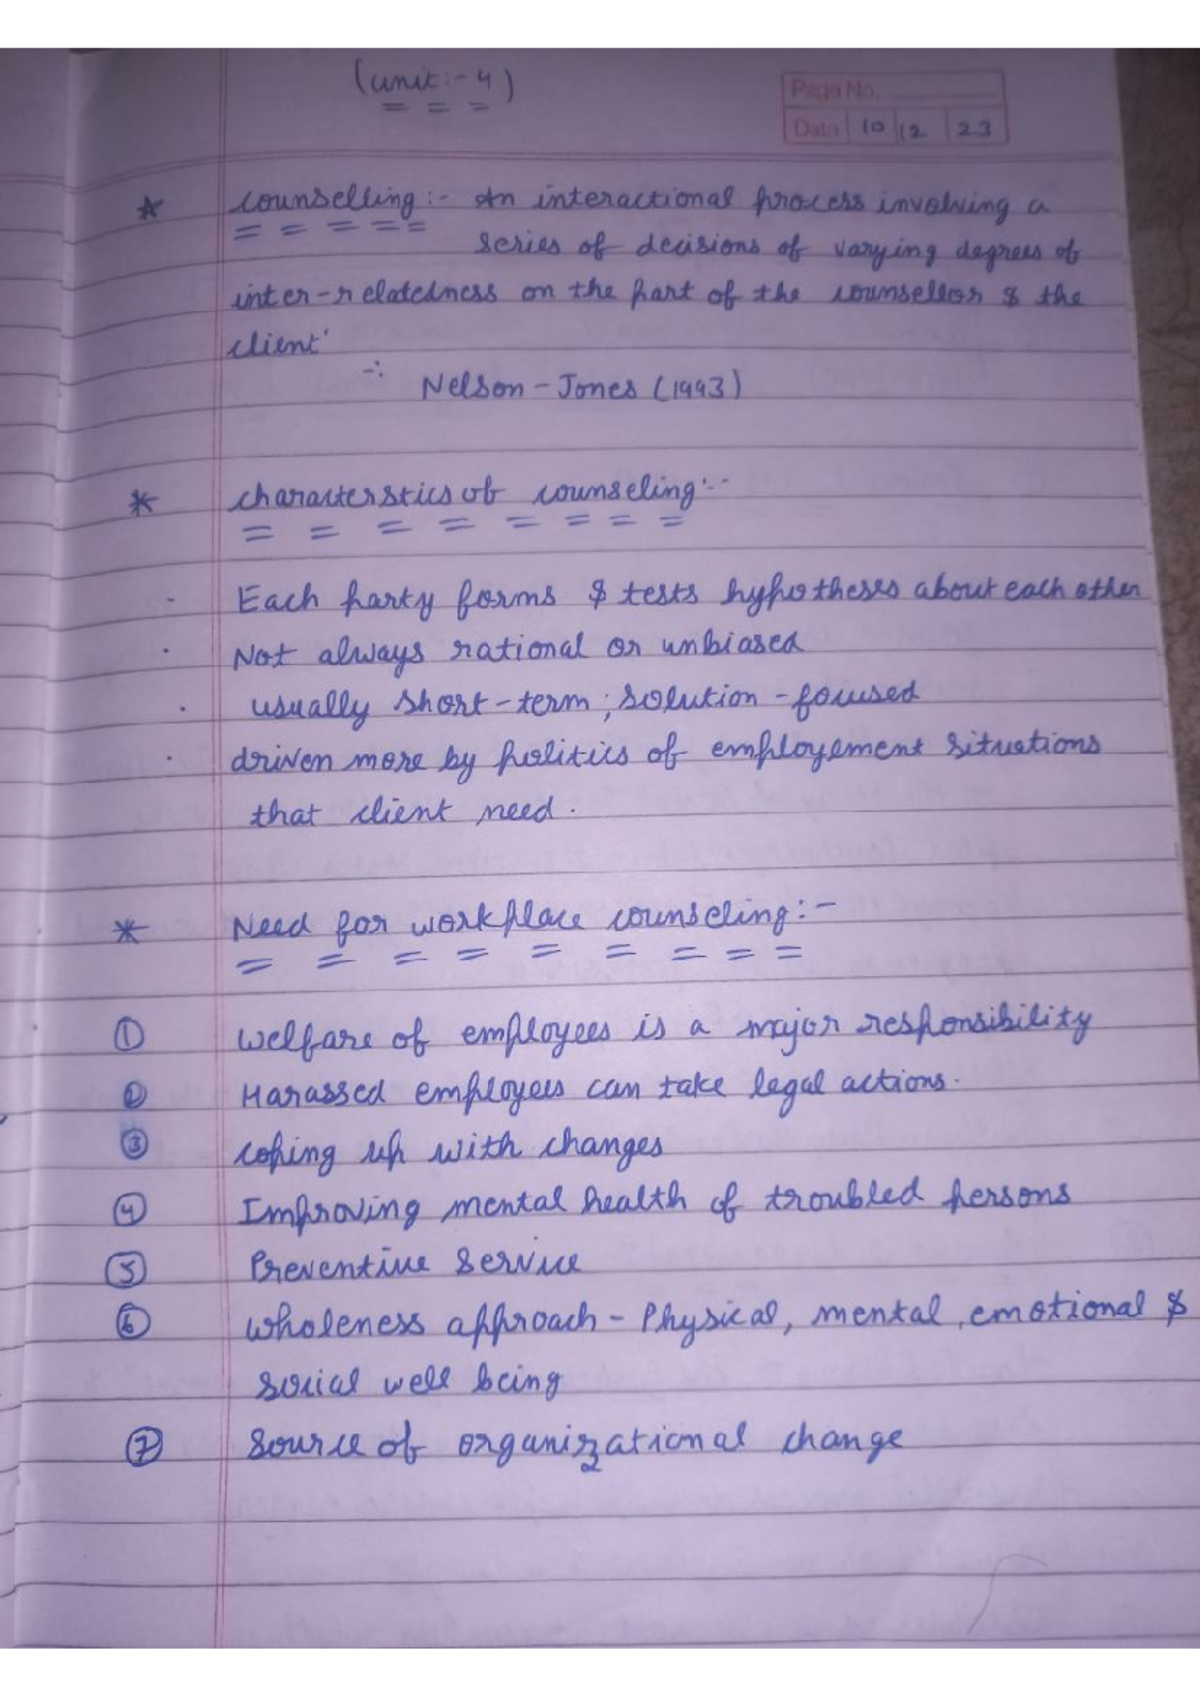 (unit:- 4)
Page No.
Date 10 12 23
* counselling:- An interactional process involving a
series of decisions of varying degrees of
inter-relatedness on the part of the counsellor & the
client'
-: Nelson-Jones (1993)
* characterstics of counseling:-
- Each party forms & tests hypotheses about each other
· Not always rational or unbiased
· usually short-term; solution-focused
· driven more by politics of employement situations
that client need.
* Need for workplace counseling:-
① welfare of employees is a major responsibility
② Harassed employees can take legal actions.
③ coping up with changes
④ Improving mental health of troubled persons
⑤ Preventive service
⑥ wholeness approach - Physical, mental, emotional &
social well being
⑦ source of organizational change